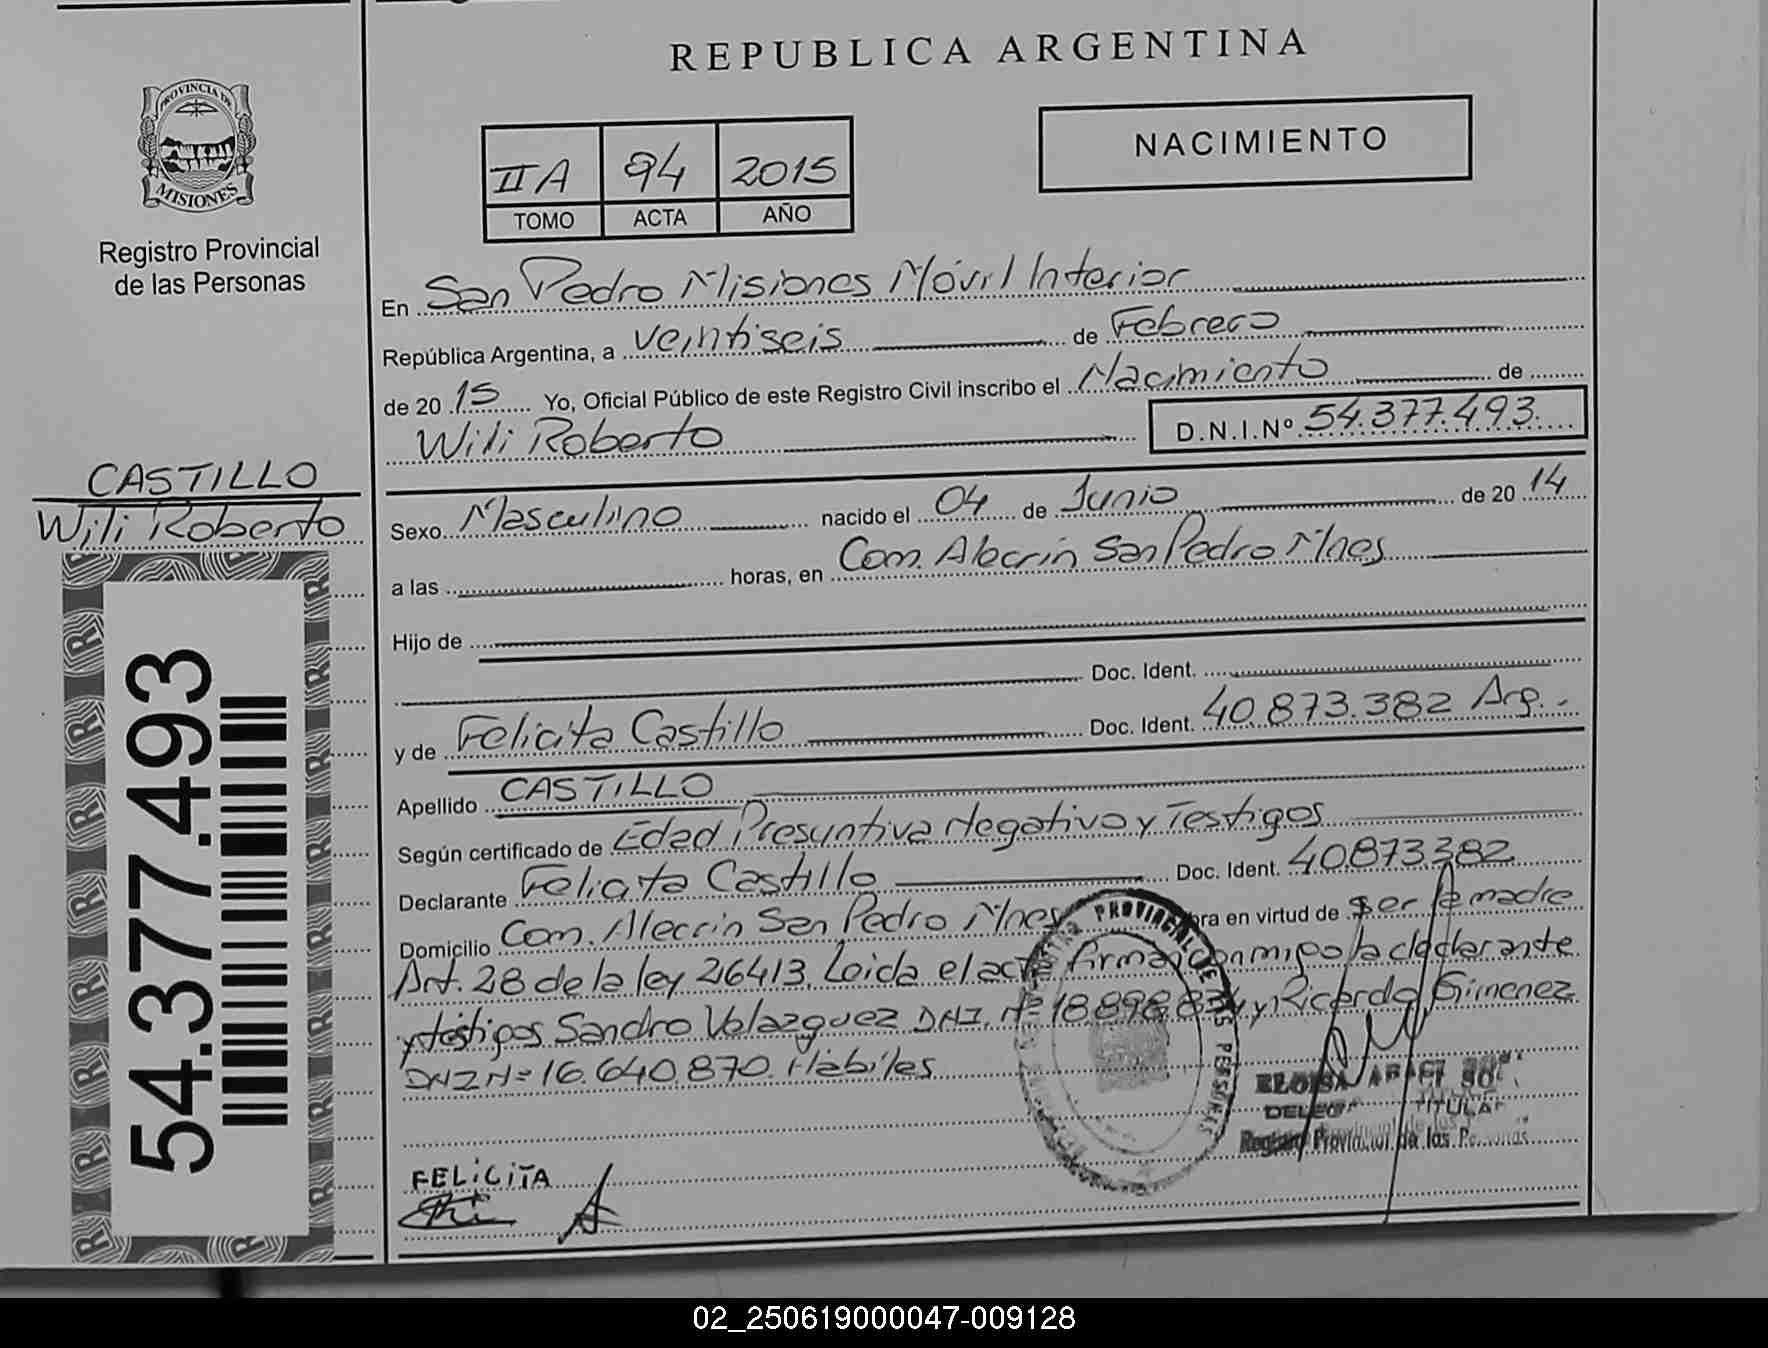 REPUBLICA ARGENTINA
PROVINCIA DE
MISIONES
Registro Provincial
de las Personas
NACIMIENTO
II A 94 2015
TOMO ACTA AÑO
En San Pedro Misiones Móvil Interior
República Argentina, a veintiseis de Febrero
de 2015 Yo, Oficial Público de este Registro Civil inscribo el Nacimiento de
Wili Roberto D.N.I.Nº 54.377.493.
CASTILLO
Wili Roberto
54.377.493
Sexo Masculino nacido el 04 de Junio de 2014
a las horas, en Com. Alecrin San Pedro Mnes
Hijo de
Doc. Ident.
y de Felicita Castillo Doc. Ident. 40.873.382 Arg.-
Apellido CASTILLO
Según certificado de Edad Presuntiva Negativo y Testigos
Declarante Felicita Castillo Doc. Ident. 40.873.382
Domicilio Com. Alecrin San Pedro Mnes bra en virtud de ser la madre
Art. 28 de la ley 26413. Loida el acta firman conmigo la declarante
y testigos Sandro Velazquez DNI. Nº 18.898.834 y Ricardo Gimenez
DNI Nº 16.640.870. Hábiles
PROVINCIAL DE LAS PERSONAS
DELEGA TITULAR
Registro Provincial de las Personas
FELICITA
02_250619000047-009128